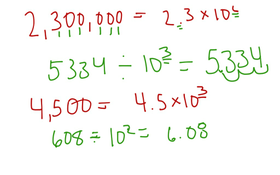 2,300,000 = 2.3 × 10⁶
5334 ÷ 10³ = 5.334
4,500 = 4.5 × 10³
608 ÷ 10² = 6.08